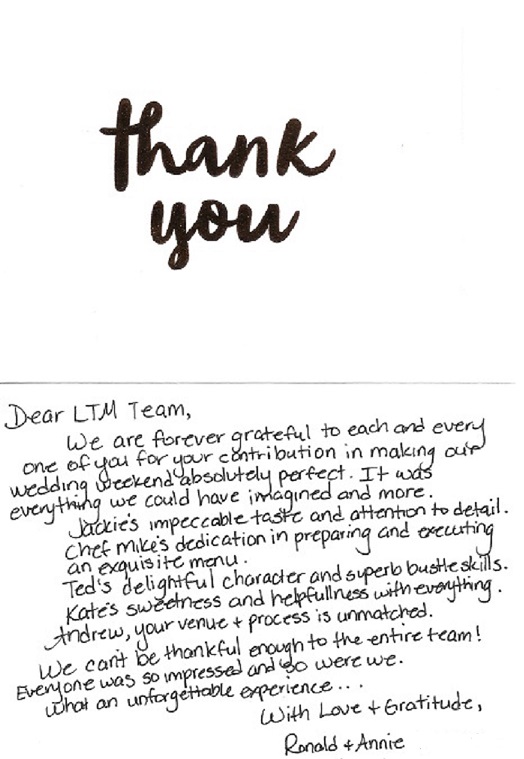 thank
you
Dear LTM Team,
We are forever grateful to each and every
one of you for your contribution in making our
wedding weekend absolutely perfect. It was
everything we could have imagined and more.
Jackie's impeccable taste and attention to detail.
Chef Mike's dedication in preparing and executing
an exquisite menu.
Ted's delightful character and superb bustle skills.
Kate's sweetness and helpfullness with everything.
Andrew, your venue + process is unmatched.
We can't be thankful enough to the entire team!
Everyone was so impressed and so were we.
What an unforgettable experience...
With Love + Gratitude,
Ronald + Annie